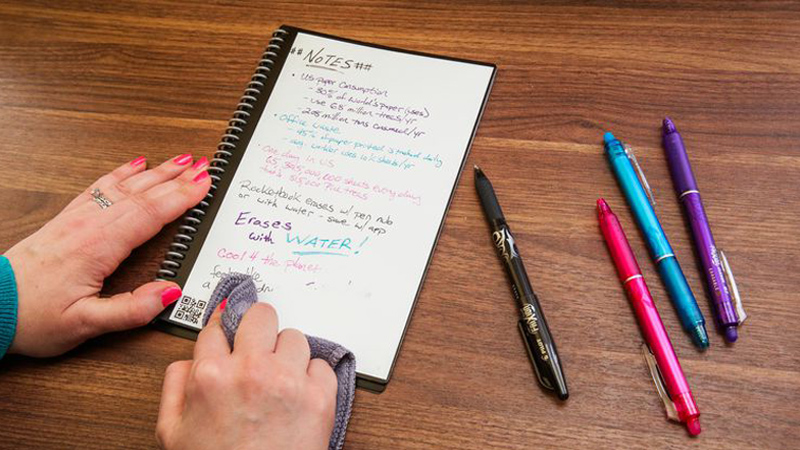 ## NOTES ##
• US paper Consumption
- 30% of world's paper (uses)
- use 68 million trees/yr
- 208 million tons consumed/yr
• Office waste
- 45% of paper printed is trashed daily
- avg. worker uses
• One day in US
sheets every day
trees
Rocketbook erases w/ pen nub
or with water - save w/ app
Erases
with WATER!
Cool 4 the planet
a
PILOT FRIXION